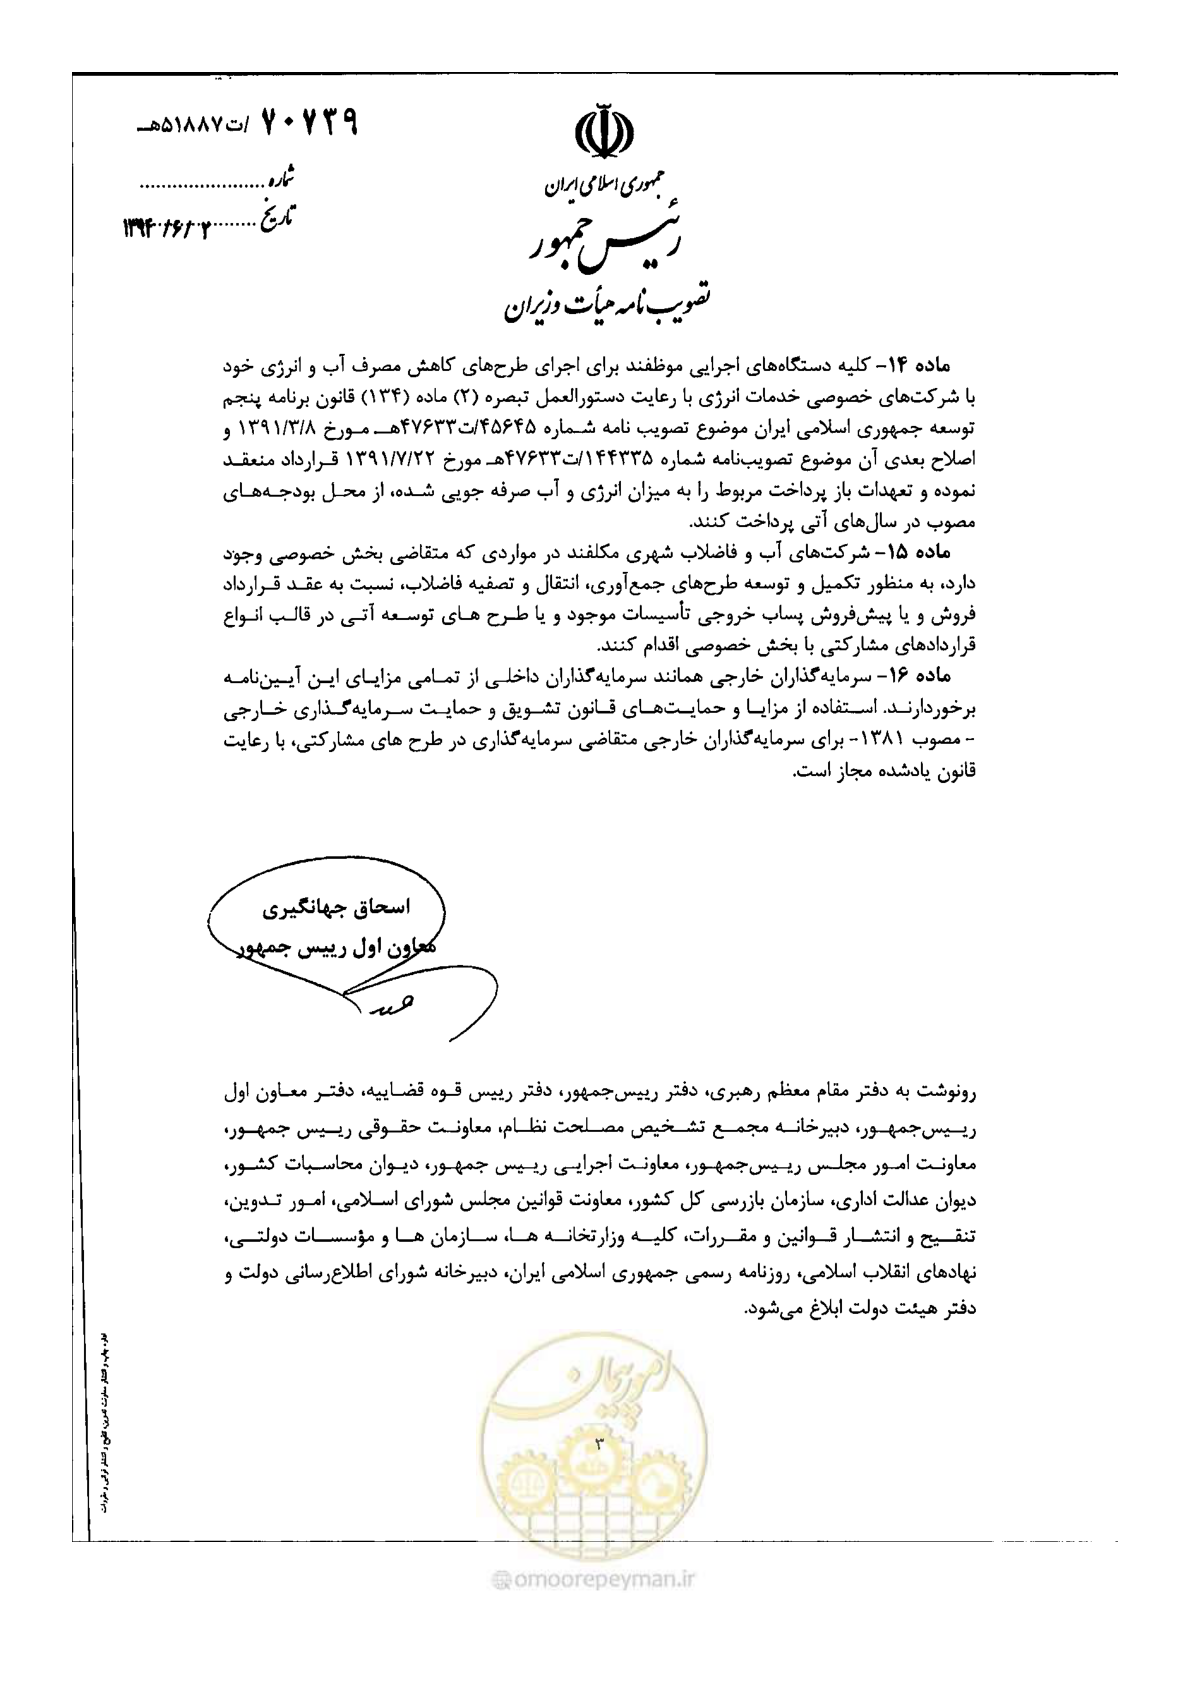 ۷۰۷۳۹ /ت۵۱۸۸۷هـ
شماره ........................
تاریخ ............ ۱۳۹۴/۶/۲
جمهوری اسلامی ایران
رئیس جمهور
تصویب نامه هیأت وزیران
ماده ۱۴- کلیه دستگاه‌های اجرایی موظفند برای اجرای طرح‌های کاهش مصرف آب و انرژی خود
با شرکت‌های خصوصی خدمات انرژی با رعایت دستورالعمل تبصره (۲) ماده (۱۳۴) قانون برنامه پنجم
توسعه جمهوری اسلامی ایران موضوع تصویب نامه شماره ۴۵۶۴۵/ت۴۷۶۳۳هـ مورخ ۱۳۹۱/۳/۸ و
اصلاح بعدی آن موضوع تصویب‌نامه شماره ۱۴۴۳۳۵/ت۴۷۶۳۳هـ مورخ ۱۳۹۱/۷/۲۲ قرارداد منعقد
نموده و تعهدات باز پرداخت مربوط را به میزان انرژی و آب صرفه جویی شده، از محل بودجه‌های
مصوب در سال‌های آتی پرداخت کنند.
ماده ۱۵- شرکت‌های آب و فاضلاب شهری مکلفند در مواردی که متقاضی بخش خصوصی وجود
دارد، به منظور تکمیل و توسعه طرح‌های جمع‌آوری، انتقال و تصفیه فاضلاب، نسبت به عقد قرارداد
فروش و یا پیش‌فروش پساب خروجی تأسیسات موجود و یا طرح های توسعه آتی در قالب انواع
قراردادهای مشارکتی با بخش خصوصی اقدام کنند.
ماده ۱۶- سرمایه‌گذاران خارجی همانند سرمایه‌گذاران داخلی از تمامی مزایای این آیین‌نامه
برخوردارند. استفاده از مزایا و حمایت‌های قانون تشویق و حمایت سرمایه‌گذاری خارجی
- مصوب ۱۳۸۱- برای سرمایه‌گذاران خارجی متقاضی سرمایه‌گذاری در طرح های مشارکتی، با رعایت
قانون یادشده مجاز است.
اسحاق جهانگیری
معاون اول رییس جمهور
رونوشت به دفتر مقام معظم رهبری، دفتر رییس‌جمهور، دفتر رییس قوه قضاییه، دفتر معاون اول
رییس‌جمهور، دبیرخانه مجمع تشخیص مصلحت نظام، معاونت حقوقی رییس جمهور،
معاونت امور مجلس رییس‌جمهور، معاونت اجرایی رییس جمهور، دیوان محاسبات کشور،
دیوان عدالت اداری، سازمان بازرسی کل کشور، معاونت قوانین مجلس شورای اسلامی، امور تدوین،
تنقیح و انتشار قوانین و مقررات، کلیه وزارتخانه ها، سازمان ها و مؤسسات دولتی،
نهادهای انقلاب اسلامی، روزنامه رسمی جمهوری اسلامی ایران، دبیرخانه شورای اطلاع‌رسانی دولت و
دفتر هیئت دولت ابلاغ می‌شود.
امور پیمان
۳
@omoorepeyman.ir